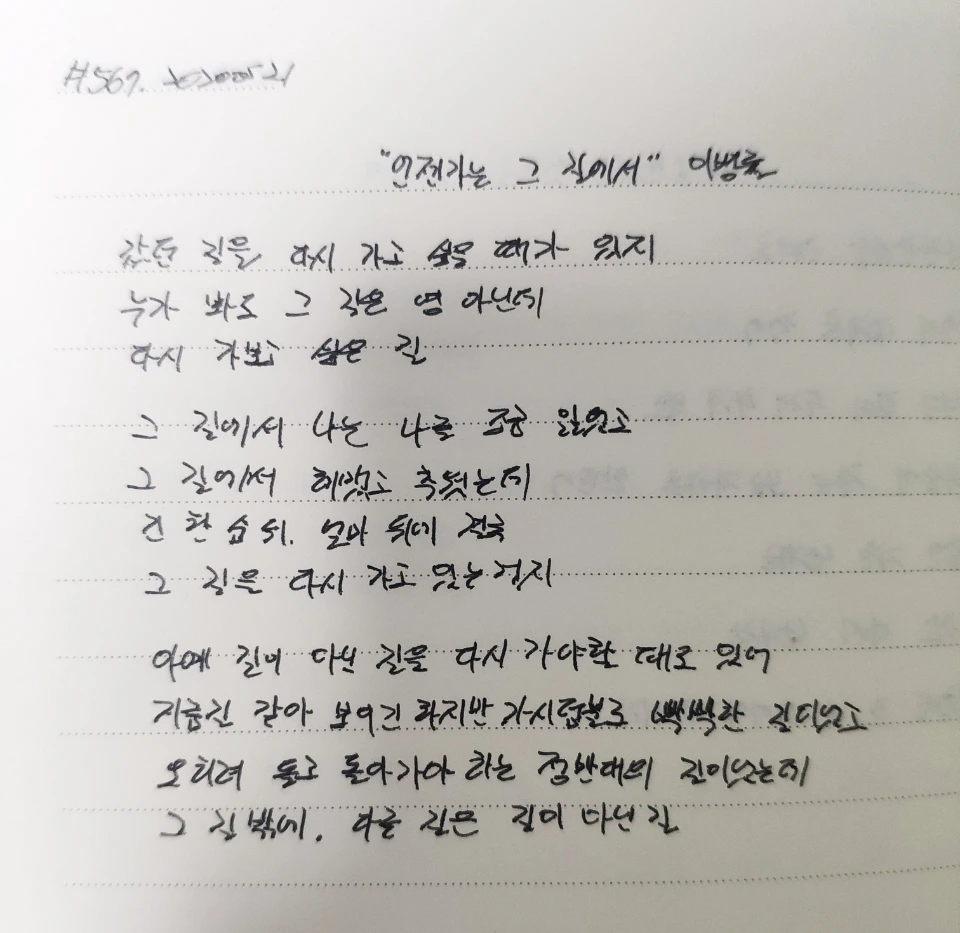 #567.
"언젠가는 그 길에서" 이병률
갔던 길을 다시 가고 싶을 때가 있지
누가 봐도 그 길은 영 아닌데
다시 가보고 싶은 길
그 길에서 나는 나를 조금 잃었고
그 길에서 헤맸고 추웠는데
긴 한숨 뒤, 얼마 뒤에 결국
그 길을 다시 가고 있는 거지
아예 길이 아닌 길을 다시 가야할 때도 있어
지름길 같아 보이긴 하지만 가시덤불로 빽빽한 길이었고
오히려 돌고 돌아가야 하는 정반대의 길이었는데
그 길밖에, 다른 길은 길이 아닌 길